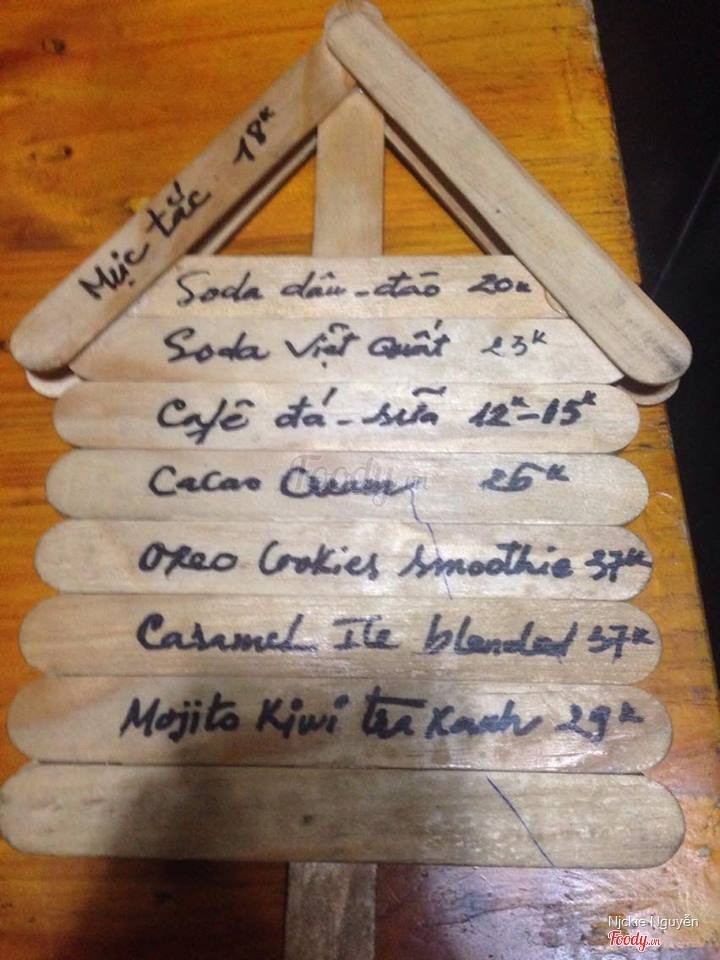 Mực tắc 18K
Soda dâu - đào 20K
Soda Việt Quất 23K
Cafê đá - sữa 12K - 15K
Cacao Cream 26K
Oreo Cookies smoothie 37K
Caramel Ice blended 37K
Mojito Kiwi trà xanh 29K
Foody.vn
Nickie Nguyễn
Foody.vn